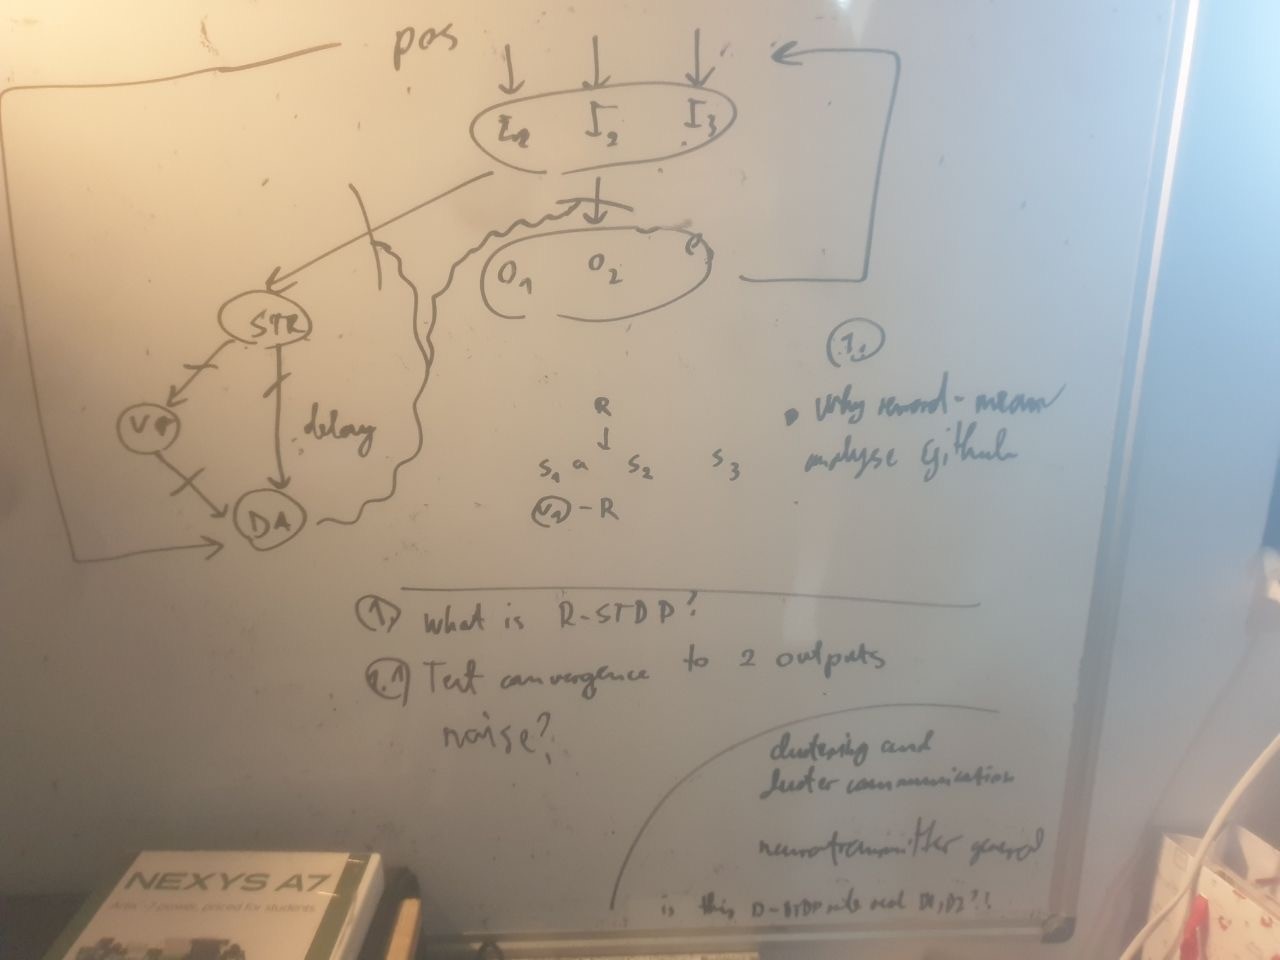 pos
I₁ I₂ I₃
O₁ O₂
STR
VP
delay
DA
R
S₁ a S₂ S₃
V₁ - R
1.
• Why reward - mean
analyse Github
1) What is R-STDP?
1.1) Test convergence to 2 outputs
noise?
clustering and
cluster communication
neurotransmitter general
is this D-STDP rule real D1, D2?!
NEXYS A7
Artix-7 power, priced for students